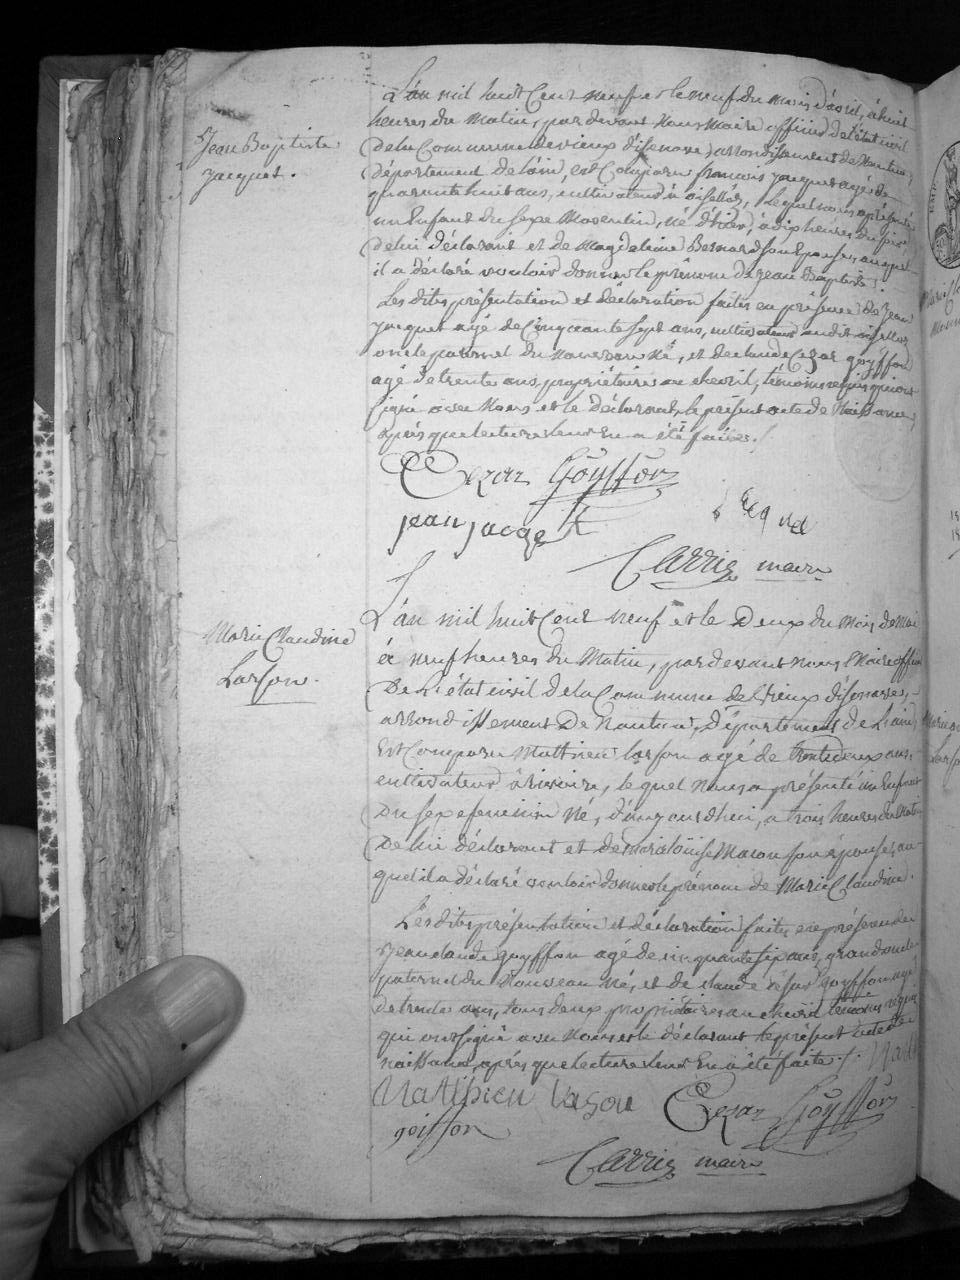 Jean Baptiste
Jacquet.
L'an mil huit Cent neuf et le neuf du mois d'avril, à huit
heures du Matin, par devant Nous Maire officier de l'état civil
de la Commune de vieux d'isenave, arrondissement de Nantua
département de l'ain, est Comparu françois jacquet agé de
quarante huit ans, cultivateur à oisellaz, lequel nous a présenté
un Enfant du sexe Masculin, né d'hier, à dix heures du soir
de lui déclarant et de Magdelaine Bernard son Epouse, auquel
il a déclaré vouloir donner le prénom de Jean Baptiste.
Les dites présentation et déclaration faites en présence de Jean
Jacquet agé de Cinquante sept ans, cultivateur audit oisellaz
oncle paternel du Nouveau Né, et de claude Cezar goyffon
agé de trente ans, propriétaire au chevril, témoins requis qui ont
signé avec Nous et le déclarant, le présent acte de Naissance,
après que lecture leur En a été faite./.
Cezar Goyffon
jean jacqet
Carrig maire
Marie Claudine
Larson.
L'an mil huit Cent neuf et le Deux du Mois de Mai
à neuf heures du Matin, par devant nous Maire officier
De l'état civil de la Commune de Vieux d'isenave,
arrondissement De Nantua, Département de L'ain,
Est Comparu Matthieu larson agé de trente deux ans,
cultivateur à , lequel Nous a présenté un Enfant
Du sexe féminin Né, d'aujourd'hui, a trois heures du Matin
De lui déclarant et de marie loüise Macon son épouse, au-
quel il a déclaré vouloir donner le prénom de Marie Claudine.
Les dites présentation et déclaration faites en présence de
Jean claude goyffon agé de cinquante six ans, grand oncle
paternel du Nouveau Né, et de claude césar Goyffon agé
de trente ans, tous deux propriétaires au chevril témoins requis
qui ont signé avec Nous et le déclarant le présent acte de
naissance, après que lecture leur En a été faite ./.
Matthieu lason Cezar Goyffon
goiffon
Carrig maire